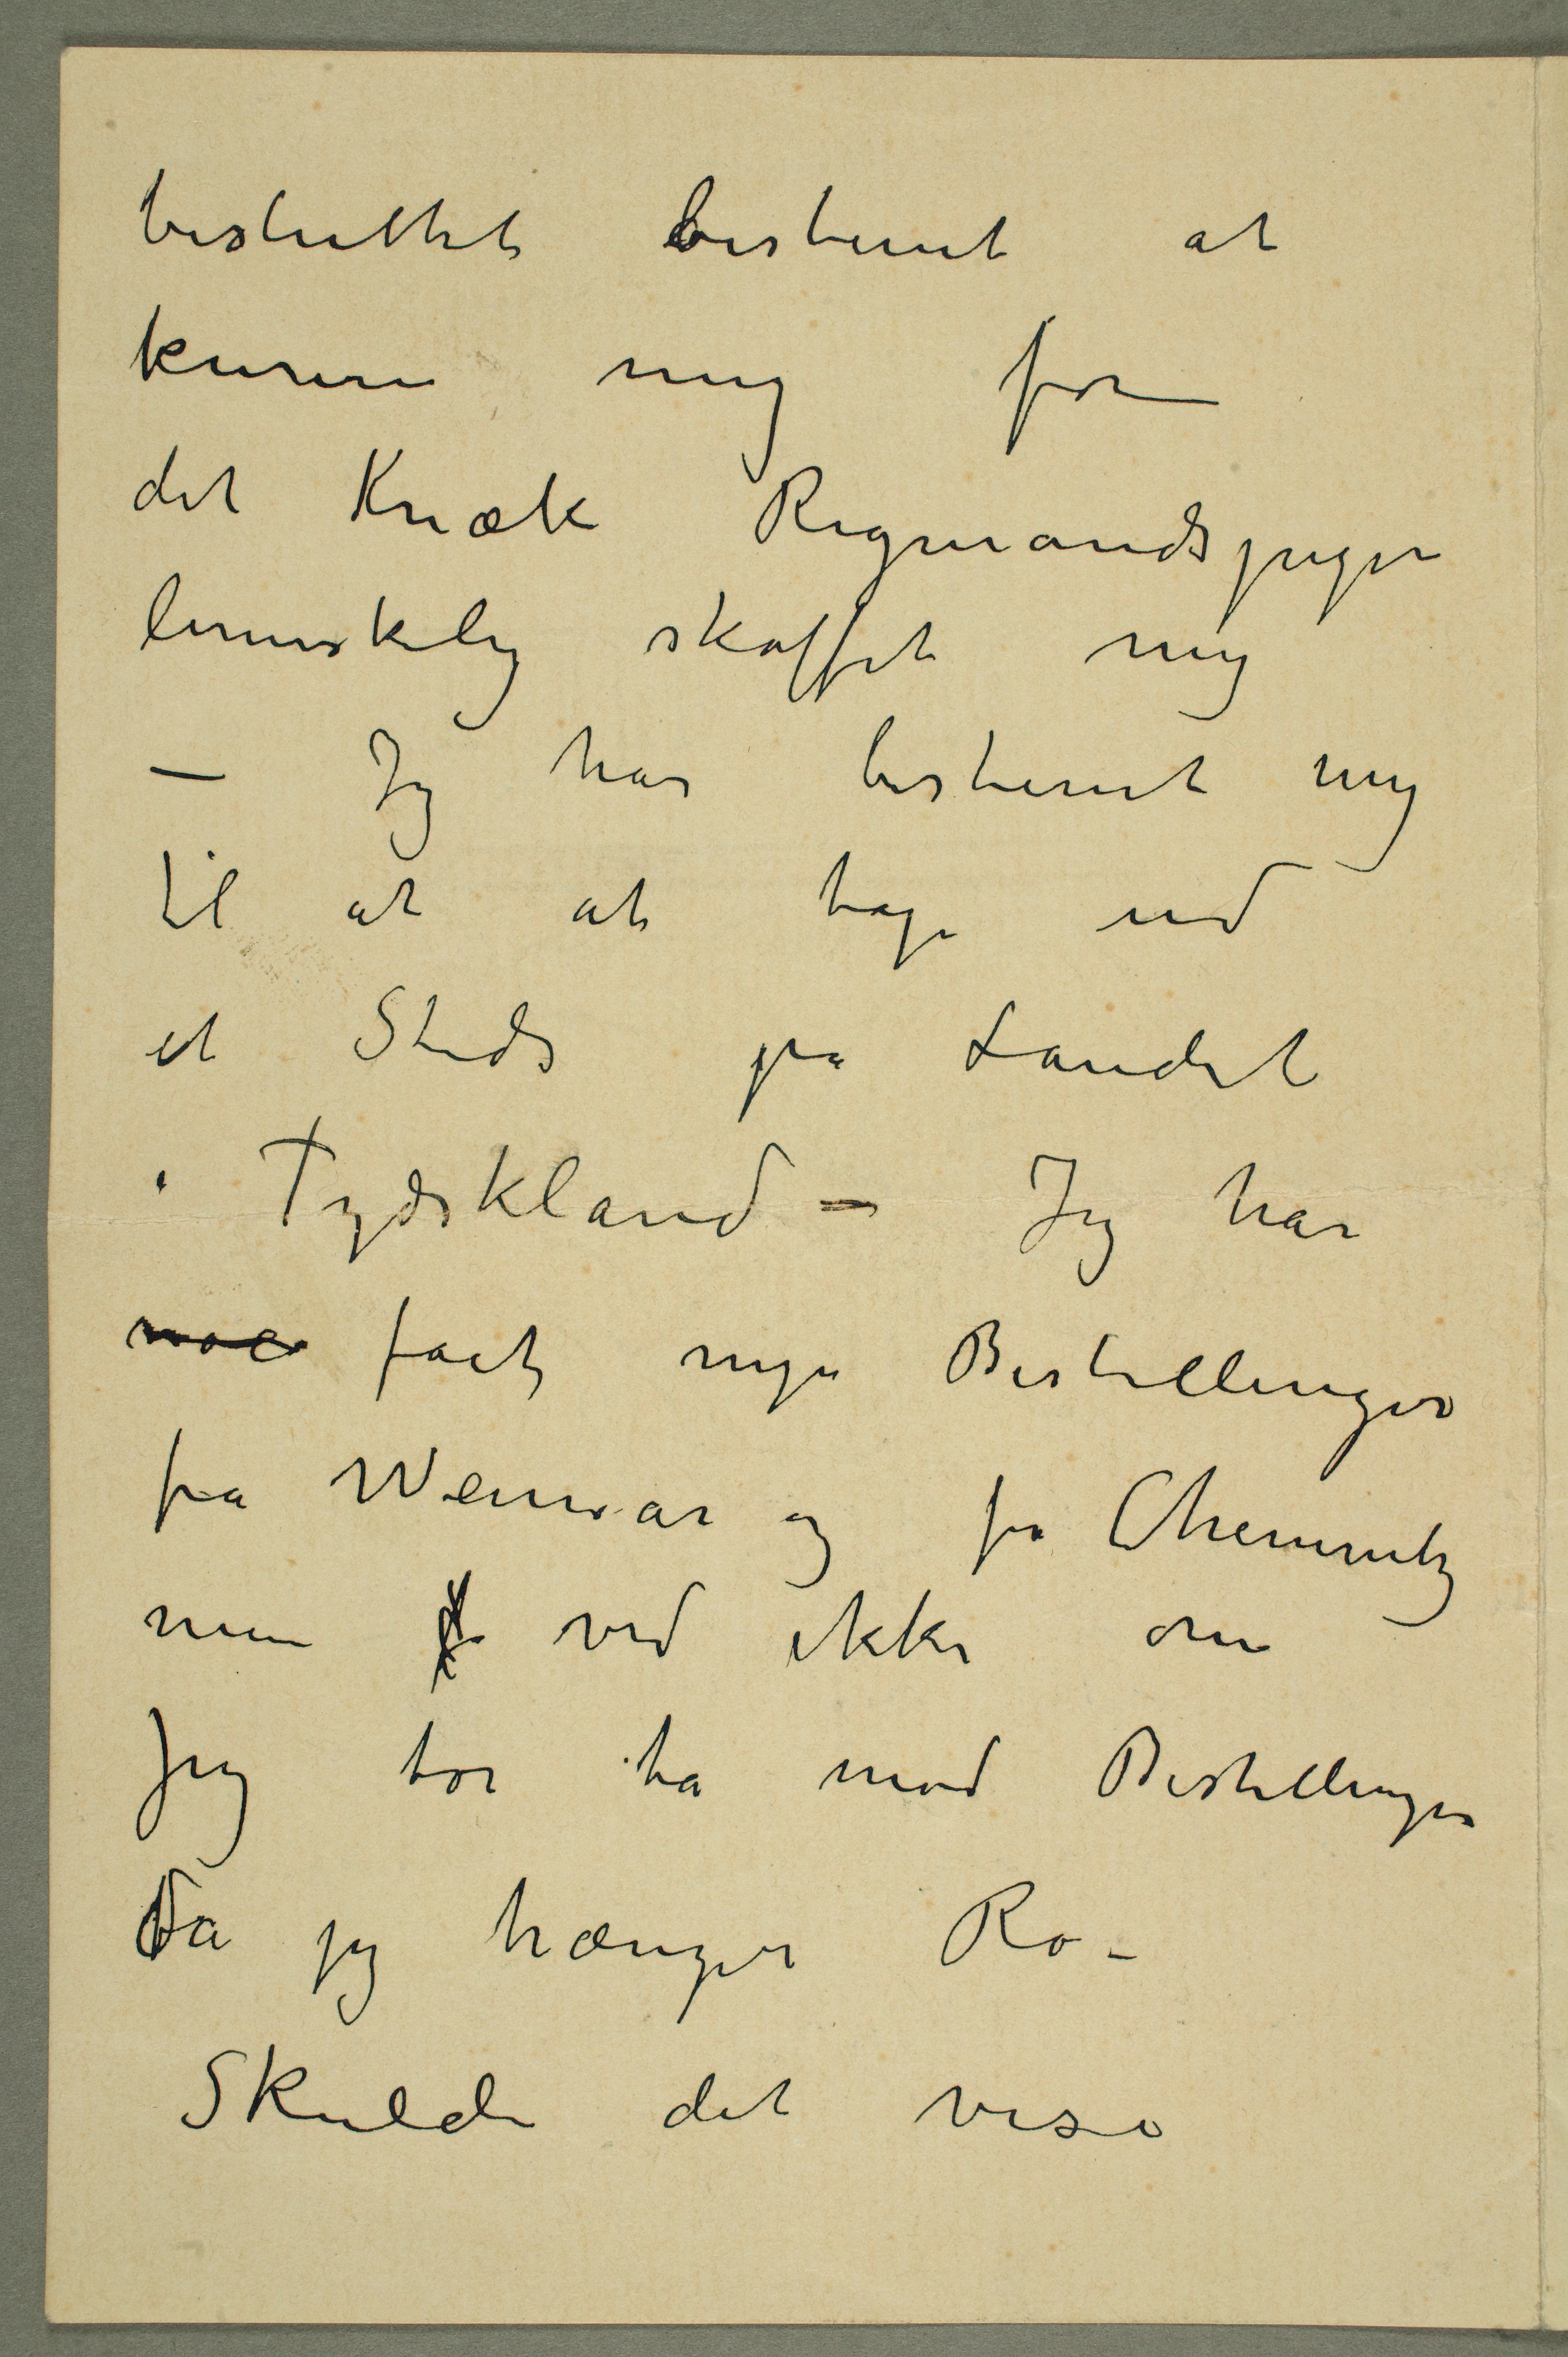 besluttet bestemt at
kurere mig for
det Knæk Rigmandspiger
lumskelig skaffet mig
— Jeg har bestemt mig
til at at tage ud
et Steds på Landet
i Tydskland – Jeg har
noe faat nye Bestillinger
fra Weimar og fra Chemnitz
men ved ikke om
jeg tør ta mod Bestillinger
da jeg trænger Ro –
Skulde det vise